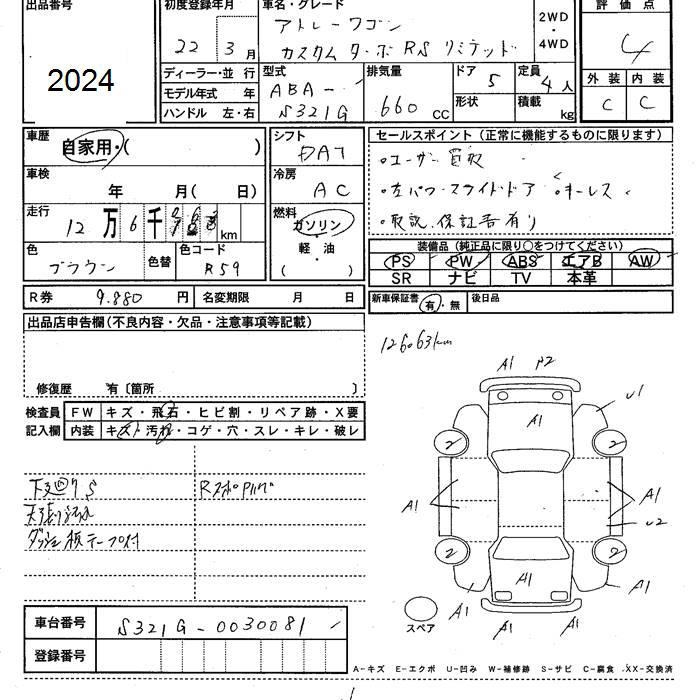 出品番号
2024
初度登録年月
22年3月
車名・グレード
アトレーワゴン
カスタムターボRSリミテッド
2WD
・
4WD
評価点
4
外装 内装
C C
ディーラー・並行
モデル年式 年
ハンドル 左・右
型式
ABA-
S321G
排気量
660cc
ドア 5
形状
定員 4人
積載 kg
車歴
自家用・( )
車検
年 月( 日)
走行
12万6千 km
色
ブラウン
色替
色コード
R59
シフト
DAT
冷房
AC
燃料
ガソリン
軽・油
( )
セールスポイント(正常に機能するものに限ります)
○ユーザー買取
○左パワースライドドア ○キーレス
○取説、保証書有り
装備品(純正品に限り○をつけてください)
PS PW ABS エアB AW
SR ナビ TV 本革
新車保証書 有・無
後日品
R券 9.880円
名変期限 月 日
出品店申告欄(不良内容・欠品・注意事項等記載)
修復歴 有〔箇所 〕
検査員
記入欄
FW キズ・飛石・ヒビ割・リペア跡・X要
内装 キズ・汚れ・コゲ・穴・スレ・キレ・破レ
下廻りS
ダッシュ板テープ付
126063km
A1 P2
A1
U1
2 2
A1
A1
U2
2 2
A1
A1
A1
A1
A1
スペア
車台番号
S321G-0030081
登録番号
A-キズ E-エクボ U-凹み W-補修跡 S-サビ C-腐食 XX-交換済